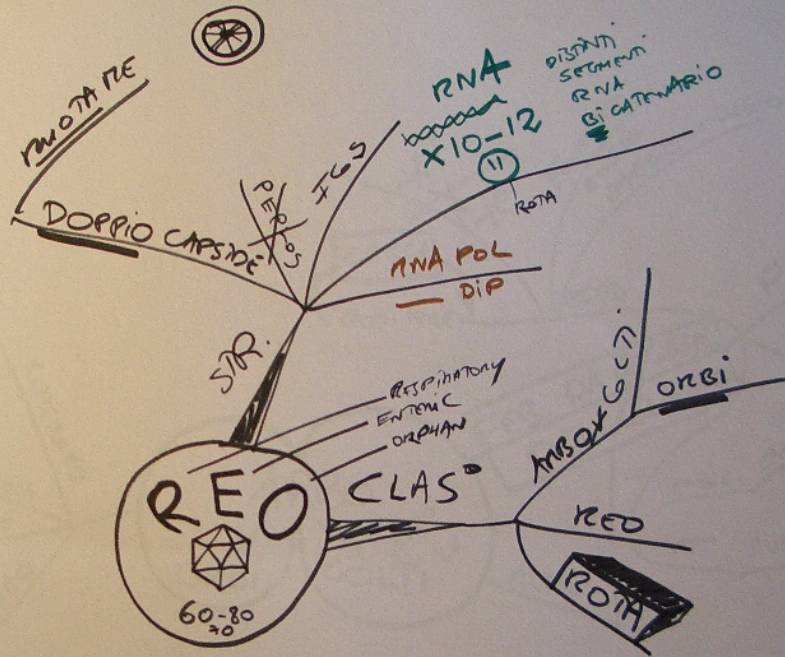 RUOTA ME
DOPPIO CAPSIDE
RNA
X10-12
11
DISTINTI
SEGMENTI
RNA
BICATENARIO
ROTA
RNA POL
DIP
STR.
RESPIRATORY
ENTERIC
ORPHAN
REO
60-80
70
CLAS°
ORBI
REO
ROTA